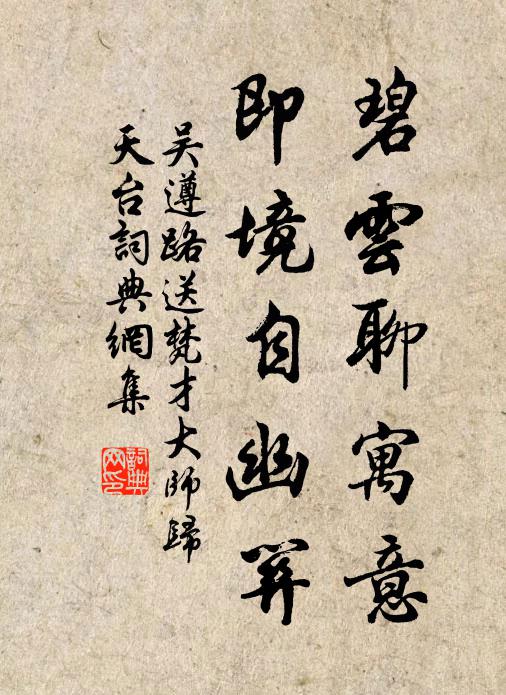 碧雲聊寓意
即境自幽
吳遵路送梵才大師歸
天台詞典網集
詞典
网印